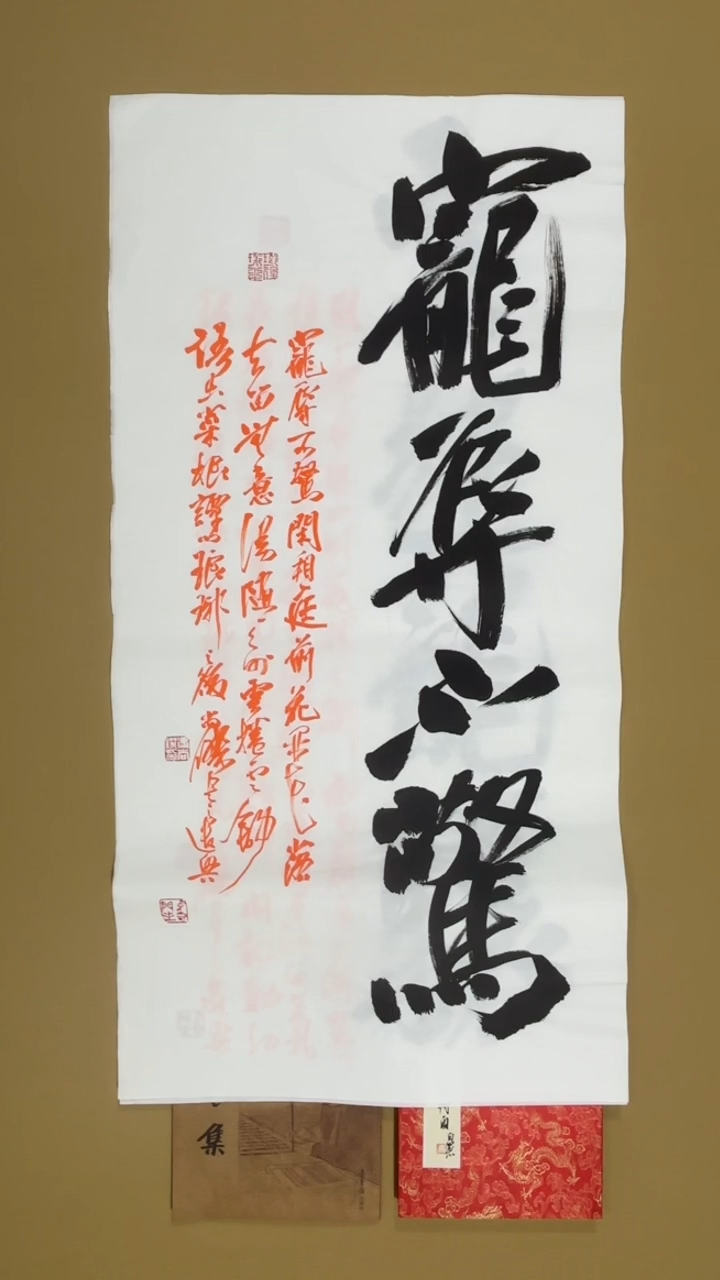 寵辱不驚
寵辱不驚閑看庭前花開花落
去留無意漫隨天外雲捲雲舒
語出菜根譚琅琊
集